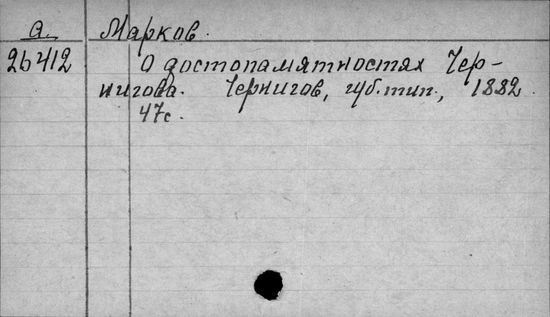 а. Марков.
26412 О достопамятностях Чер-
нигова. Чернигов, губ. тип., 1882.
47с.